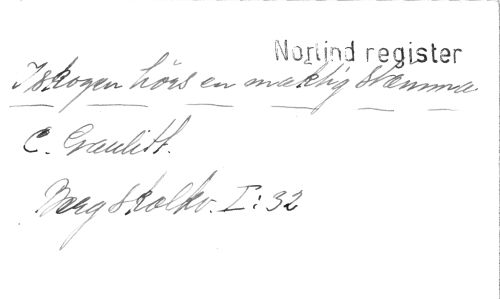 Norlind register
I skogen hörs en mäktig stämma
C. Graulitt.
Berg skolkv. I: 32